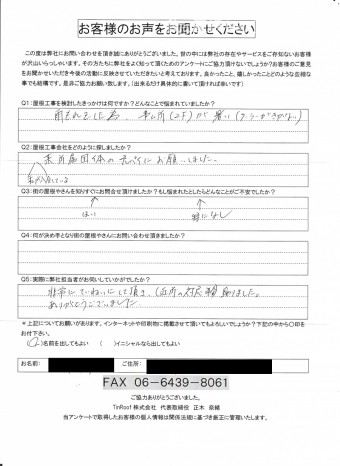 お客様のお声をお聞かせください
この度は弊社にお問い合わせを頂き誠にありがとうございました。世の中には弊社の存在やサービスをご存知ないお客様
が沢山いらっしゃいます。その方たちに弊社をよく知って頂くためのアンケートにご協力頂けないでしょうか？お客様のご意見
をお聞かせいただき今後の活動に反映させていただきたいと考えております。良かったこと、嬉しかったことどのような些細な
事でも結構です。是非ご協力お願い致します。（出来るだけ具体的に書いて頂ければ幸いです）
Q1：屋根工事を検討したきっかけは何ですか？どんなことで悩まれていましたか？
雨もれをした為、事ム所(2F)が暑い(クーラーがきかない)
Q2：屋根工事会社をどのように探しましたか？
所属団体の
にお願いしました。
Q3：街の屋根やさんを知りすぐにお問合せ頂けましたか？もし悩まれたとしたらどんなことがご不安でしたか？
はい
特になし
Q4：何が決め手となり街の屋根やさんにお問い合わせ頂きましたか？
Q5：実際に弊社担当者がお伺いしていかがでしたか？
非常にていねいにして頂き、(近所の対応等)助かりました。
ありがとうございました。
＊上記についてお願いがあります。インターネットや印刷物に掲載させて頂いてもよろしいでしょうか？下記の中から〇印を
お付下さい。
( )名前を出してもよい ( )イニシャルなら出してもよい
お名前:
ご住所:
FAX 06-6439-8061
ご協力ありがとうございました。
TinRoof 株式会社 代表取締役 正木 奈緒
当アンケートで取得したお客様の個人情報は関係法規に基づき厳正に管理いたします。